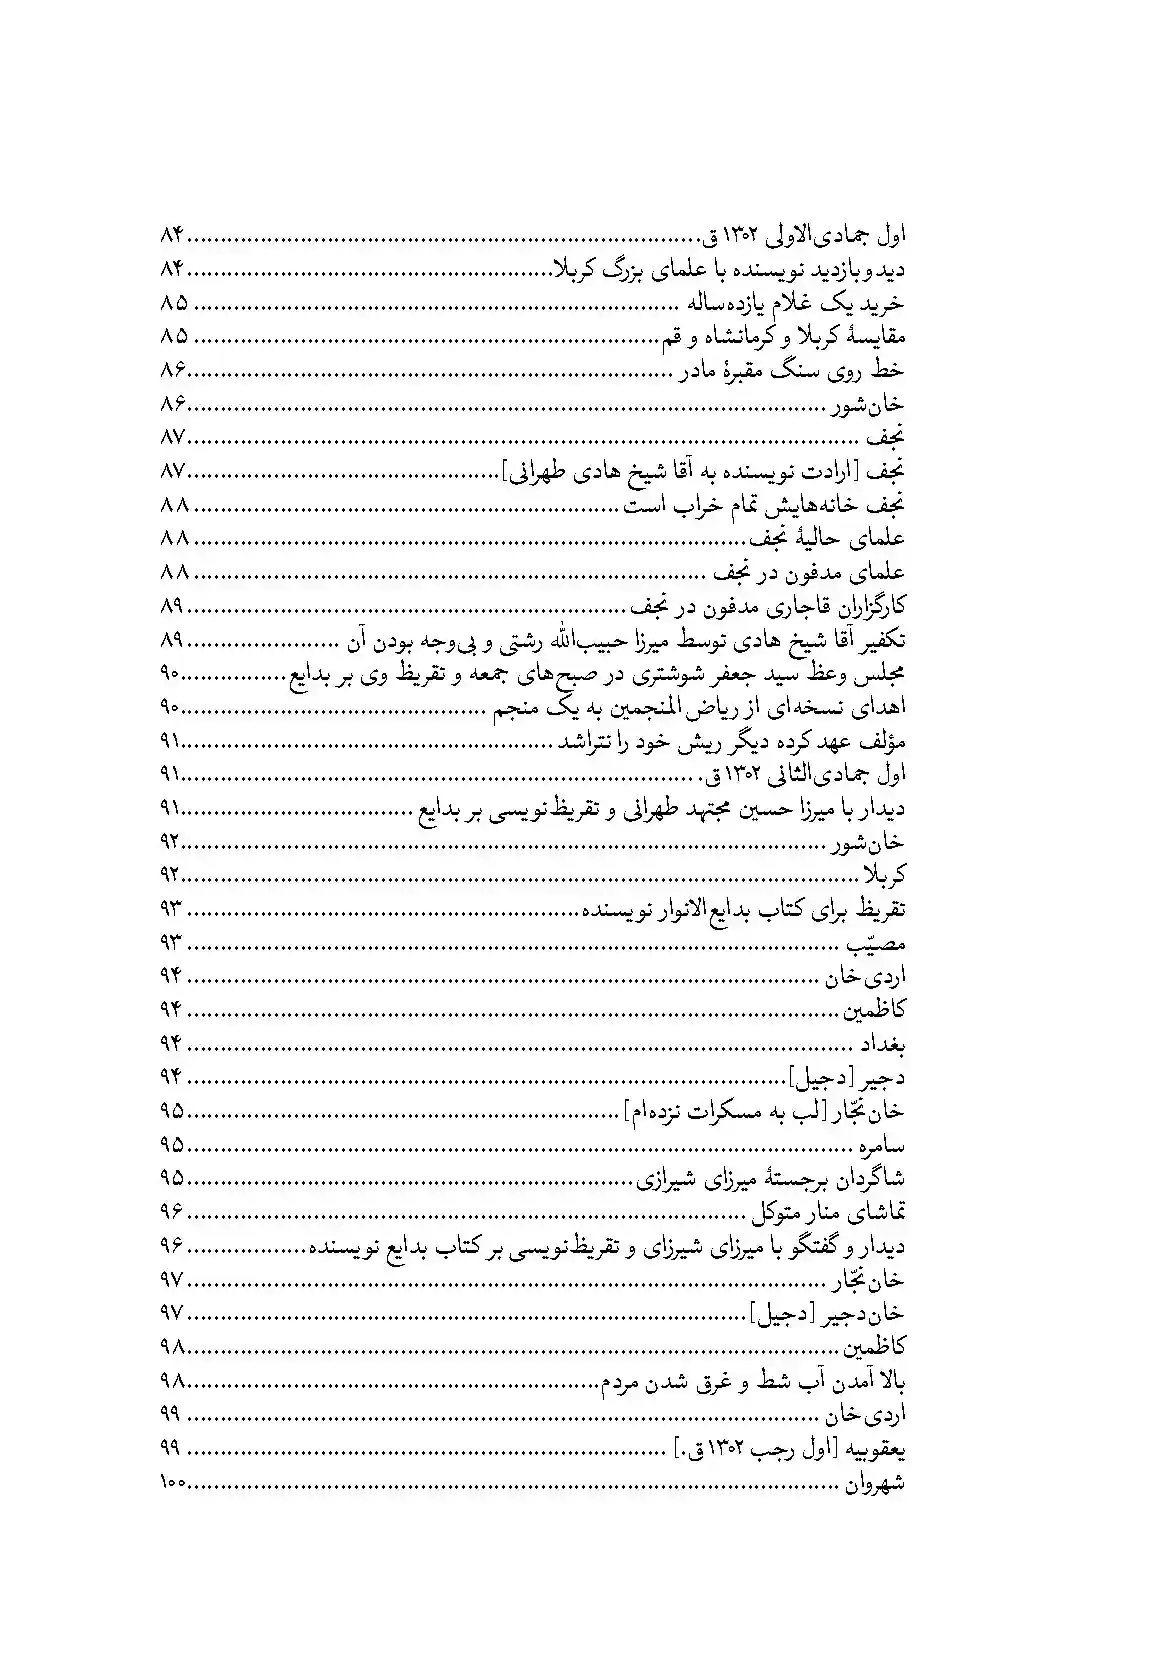 اول جمادی‌الاولی ۱۳۰۲ق.................................................................................۸۴
دیدوبازدید نویسنده با علمای بزرگ کربلا.......................................................۸۴
خرید یک غلام یازده‌ساله .......................................................................... ۸۵
مقایسهٔ کربلا و کرمانشاه و قم...................................................................... ۸۵
خط روی سنگ مقبرهٔ مادر .........................................................................۸۶
خان‌شور ................................................................................................۸۶
نجف .....................................................................................................۸۷
نجف [ارادت نویسنده به آقا شیخ هادی طهرانی]...............................................۸۷
نجف خانه‌هایش تمام خراب است................................................................ ۸۸
علمای حالیهٔ نجف................................................................................... ۸۸
علمای مدفون در نجف ............................................................................. ۸۸
کارگزاران قاجاری مدفون در نجف..................................................................۸۹
تکفیر آقا شیخ هادی توسط میرزا حبیب‌الله رشتی و بی‌وجه بودن آن .......................۸۹
مجلس وعظ سید جعفر شوشتری در صبح‌های جمعه و تقریظ وی بر بدایع................۹۰
اهدای نسخه‌ای از ریاض‌المنجمین به یک منجم ..............................................۹۰
مؤلف عهد کرده دیگر ریش خود را نتراشد........................................................۹۱
اول جمادی‌الثانی ۱۳۰۲ق. .............................................................................۹۱
دیدار با میرزا حسین مجتهد طهرانی و تقریظ‌نویسی بر بدایع...................................۹۱
خان‌شور .................................................................................................۹۲
کربلا......................................................................................................۹۲
تقریظ برای کتاب بدایع‌الانوار نویسنده........................................................... ۹۳
مصیّب .................................................................................................. ۹۳
اردی‌خان ............................................................................................... ۹۴
کاظمین.................................................................................................. ۹۴
بغداد .................................................................................................... ۹۴
دجیر [دجیل].......................................................................................... ۹۴
خان‌نجّار [لب به مسکرات نزده‌ام].................................................................۹۵
سامره ....................................................................................................۹۵
شاگردان برجستهٔ میرزای شیرازی...................................................................۹۵
تماشای منار متوکل.................................................................................... ۹۶
دیدار و گفتگو با میرزای شیرزای و تقریظ‌نویسی بر کتاب بدایع نویسنده..................۹۶
خان‌نجّار ................................................................................................ ۹۷
خان‌دجیر [دجیل].................................................................................... ۹۷
کاظمین..................................................................................................۹۸
بالا آمدن آب شط و غرق شدن مردم..............................................................۹۸
اردی‌خان ............................................................................................... ۹۹
یعقوبیه [اول رجب ۱۳۰۲ق.] ........................................................................ ۹۹
شهروان ..................................................................................................۱۰۰